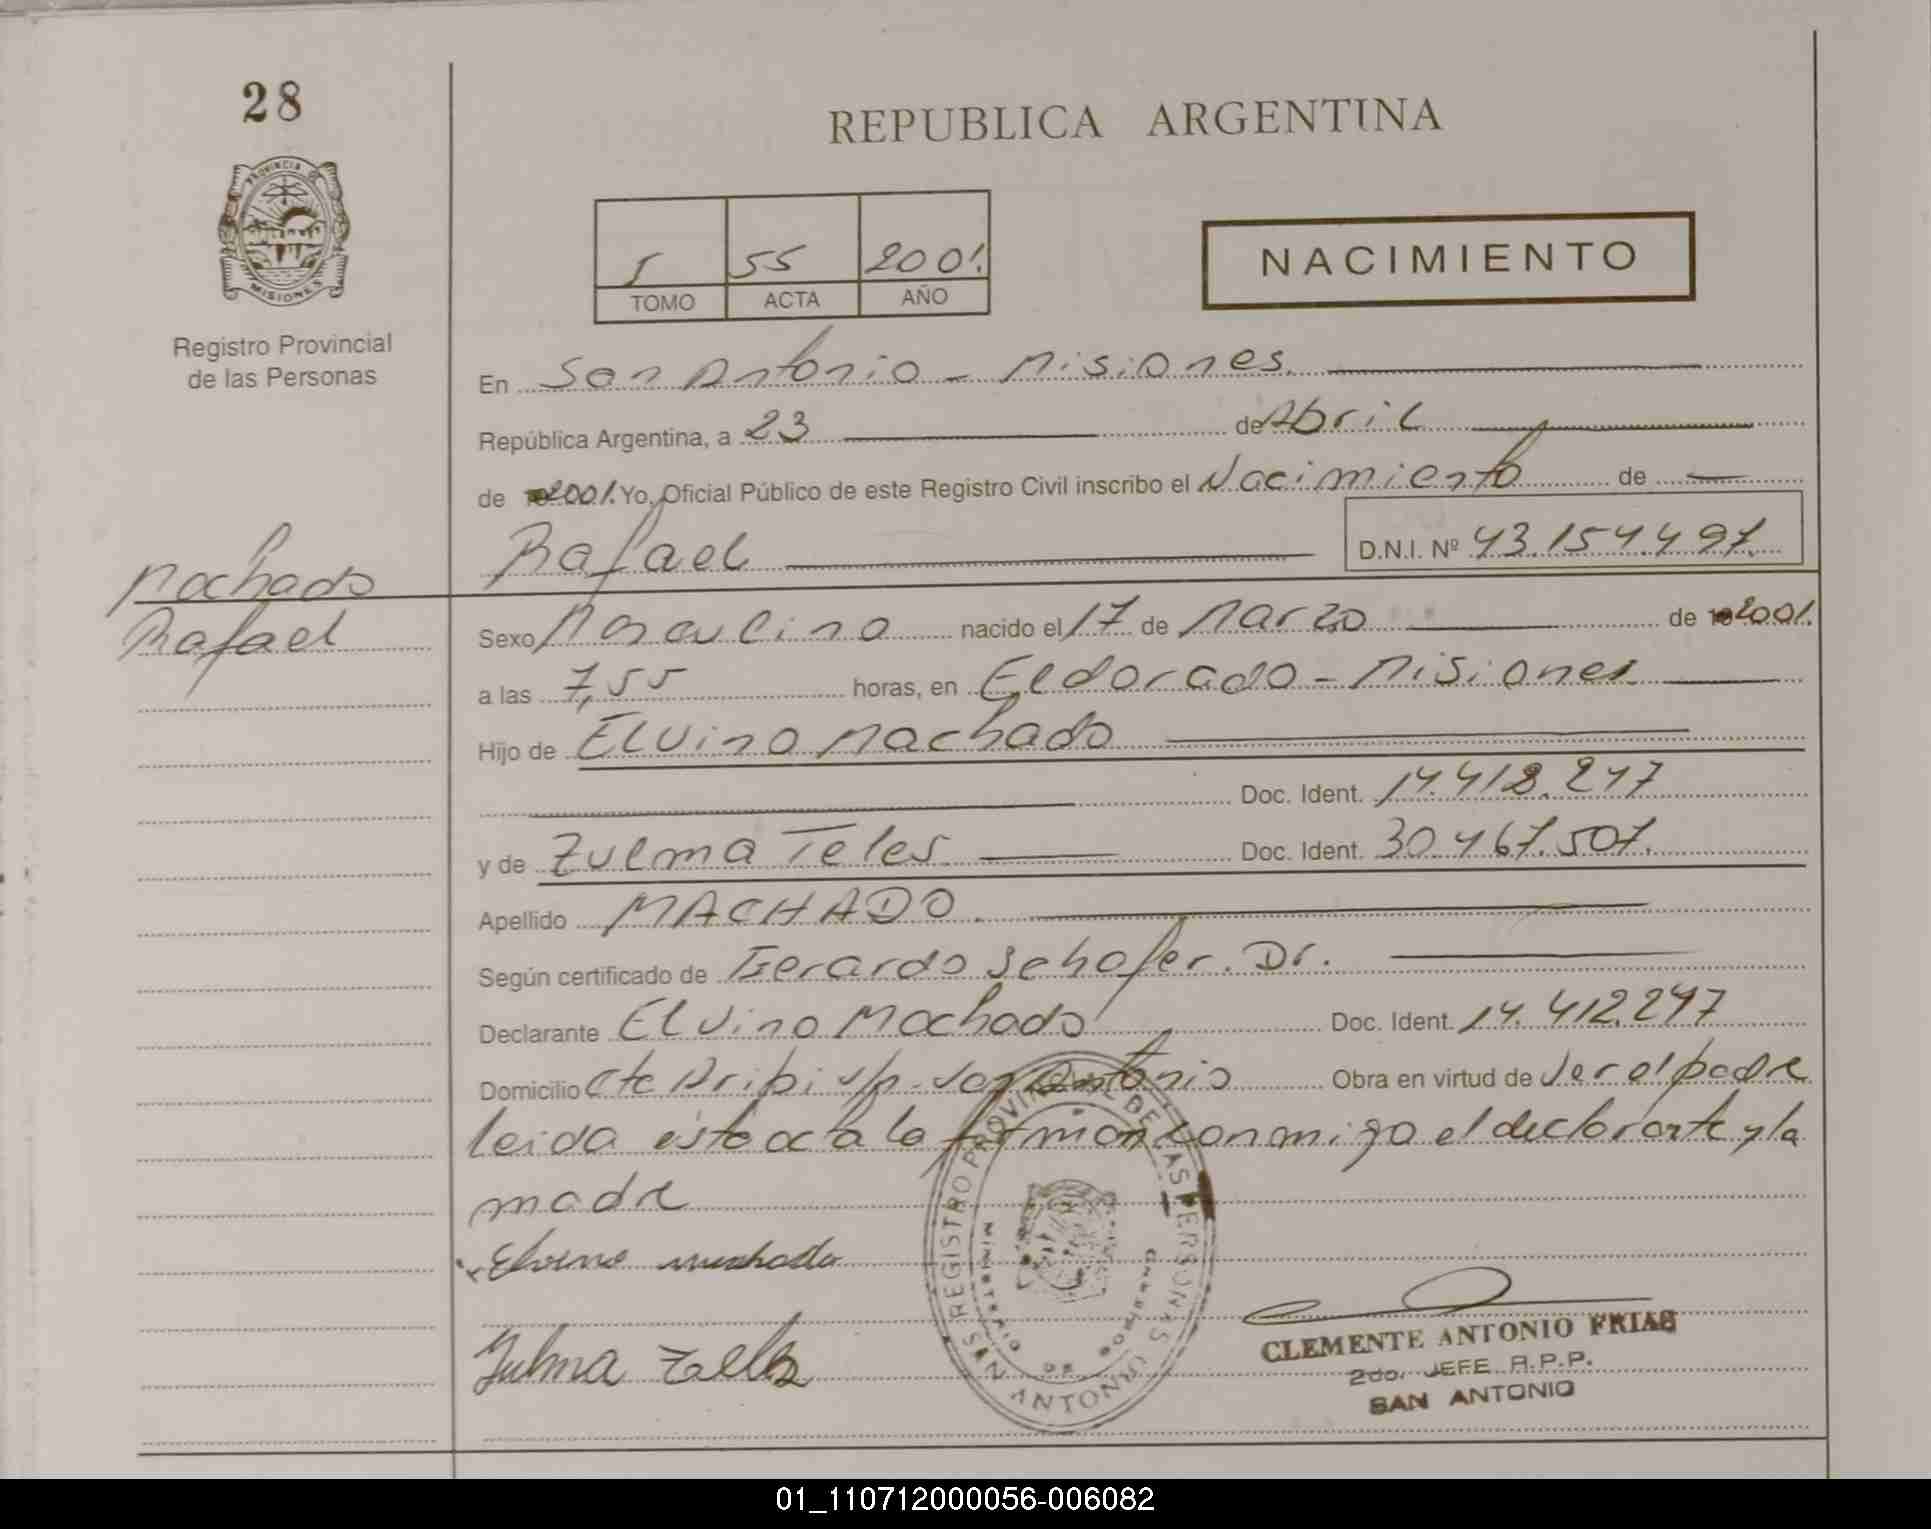 28
REPUBLICA ARGENTINA
PROVINCIA DE
MISIONES
Registro Provincial
de las Personas
I 55 2001.
TOMO ACTA AÑO
NACIMIENTO
En San Antonio - Misiones.
República Argentina, a 23 de Abril
de 2001. Yo, Oficial Público de este Registro Civil inscribo el Nacimiento de
Rafael
D.N.I. Nº 43.154.497.
Machado
Rafael
Sexo Masculino nacido el 17 de Marzo de 2001.
a las 7,55 horas, en Eldorado - Misiones
Hijo de Elvino Machado
Doc. Ident. 14.412.247
y de Zulma Teles Doc. Ident. 30.467.507.
Apellido MACHADO.
Según certificado de Gerardo Schofer. Dr.
Declarante Elvino Machado Doc. Ident. 14.412.247
Domicilio Cte s/n - San Antonio Obra en virtud de ser el padre
leida esta acta la firman conmigo el declarante y la
madre
Elvino machado
Zulma
REGISTRO PROVINCIAL DE LAS PERSONAS
SAN ANTONIO
MINISTERIO DE GOBIERNO
CLEMENTE ANTONIO FRIAS
2do. JEFE R.P.P.
SAN ANTONIO
01_110712000056-006082